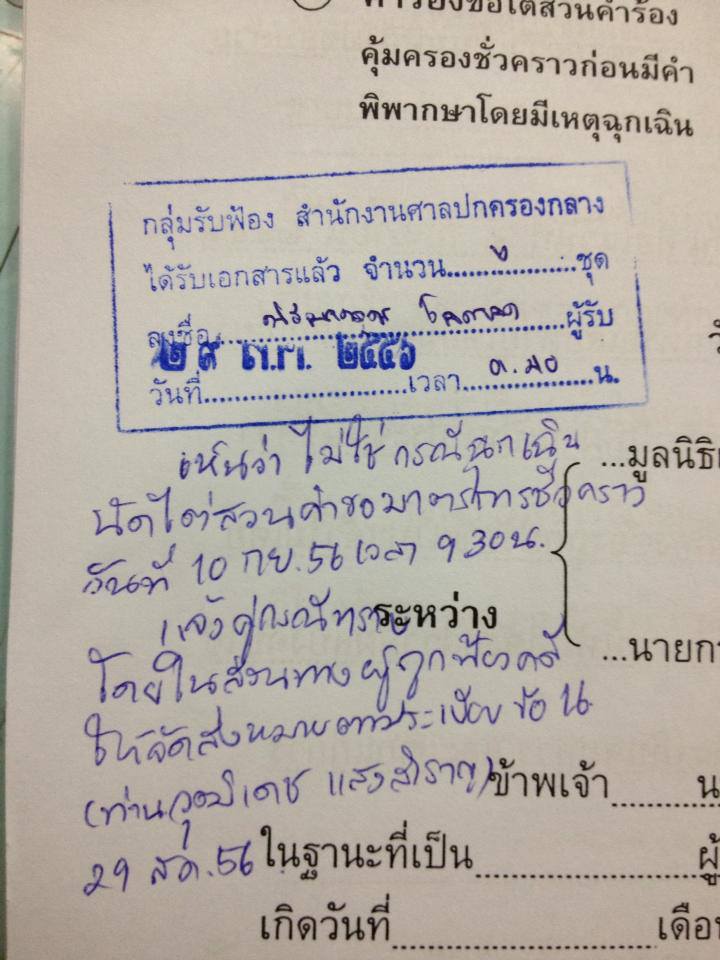 คำร้องขอไต่สวนคำร้อง
คุ้มครองชั่วคราวก่อนมีคำ
พิพากษาโดยมีเหตุฉุกเฉิน
กลุ่มรับฟ้อง สำนักงานศาลปกครองกลาง
ได้รับเอกสารแล้ว จำนวน.....................ชุด
ลงชื่อ.....................ผู้รับ
๒๙ ๒๕๕๖
วันที่.....................เวลา.....................น.
เห็นว่า ไม่ใช่กรณีฉุกเฉิน
...มูลนิธิ
นัดไต่สวนคำขอมาตรการชั่วคราว
วันที่ 10 กย. 56 เวลา 9.30 น.
แจ้งคู่กรณีทราบ
ระหว่าง
...นาย
โดยในส่วนทางผู้ถูกฟ้องคดี
ให้จัดส่งหมายตามระเบียบ ข้อ
(ท่านวุฒิเดช แสงสำราญ)
ข้าพเจ้า
29 สค. 56
ในฐานะที่เป็น
เกิดวันที่